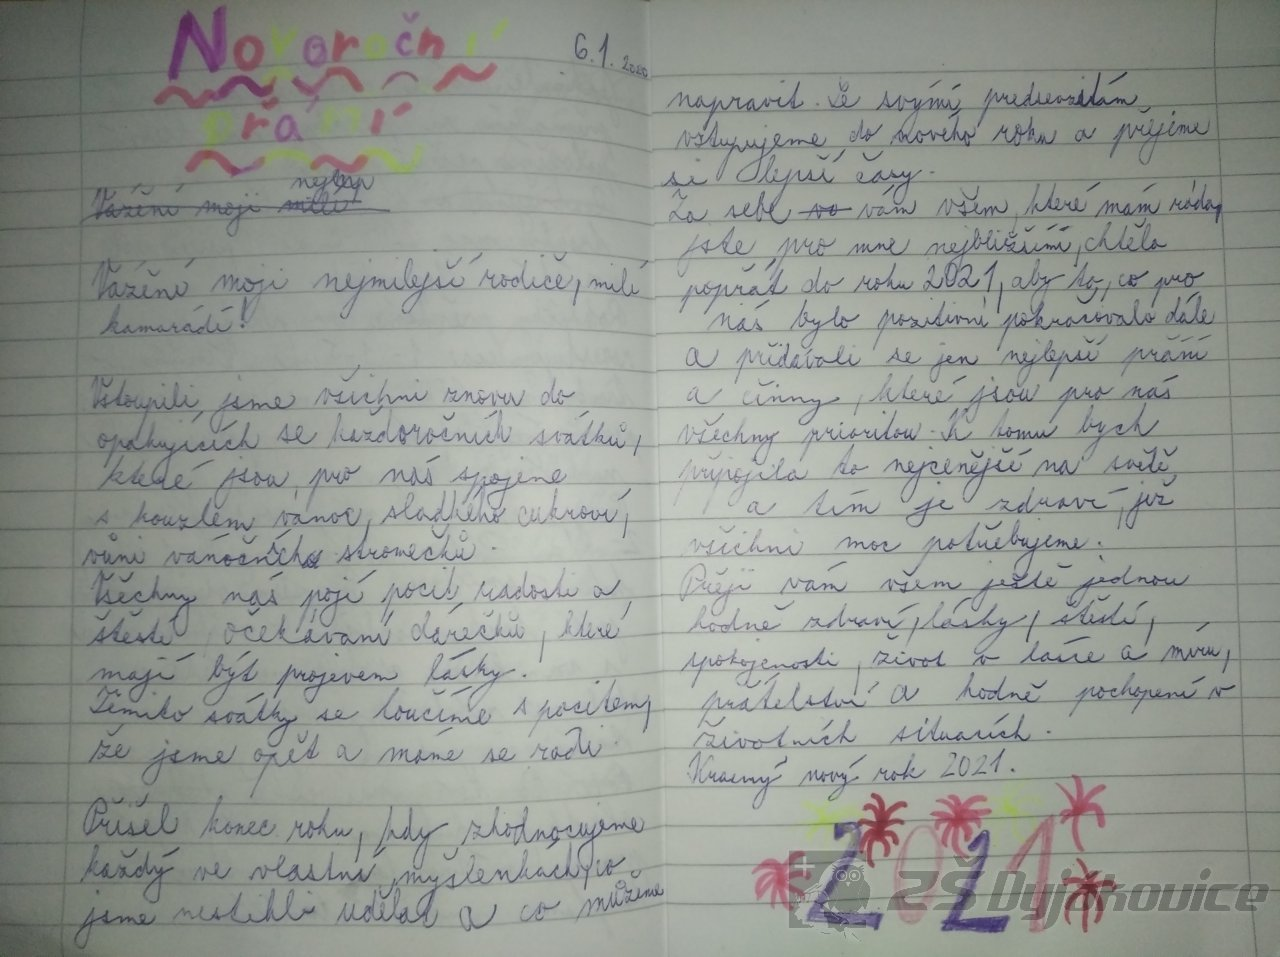 Novoroční
přání
6.1. 2020
nejlep
Vážení moji milí
Vážení moji nejmilejší rodiče, milí
kamarádi!
Vstoupili jsme všichni znovu do
opakujících se každoročních svátků,
které jsou pro nás spojene
s kouzlem vánoc, sladkého cukroví,
vůni vánočních stromečků.
Všechny nás pojí pocit radosti a
štěstí, očekávaní dárečků, které
mají být projevem lásky.
Těmito svátky se loučíme s pocitem,
že jsme opět a máme se rádi.
Přišel konec roku, kdy zhodnocujeme
každý ve vlastní myšlenkách, co
jsme nestihli udělat a co můžeme
napravit. Že svými predsevzetím
vstupujeme do nového roku a přejeme
si lepší časy.
Za sebe vo vám všem, které mám ráda,
jste pro mne nejbližšími, chtěla
popřát do roku 2021, aby to, co pro
nás bylo pozitivní pokračovalo dále
a přidávali se jen nejlepší přání
a činny, které jsou pro nás
všechny prioritou. K tomu bych
připojila to nejcenější na světě,
a tím je zdraví, jež
všichni moc potřebujeme.
Přeji vám všem ještě jednou
hodně zdraví, lásky, štěstí,
spokojenosti, život v lásce a míru,
přátelství a hodně pochopení v
životních situacích.
Krasný nový rok 2021.
2021
ZŠ Dyjákovice